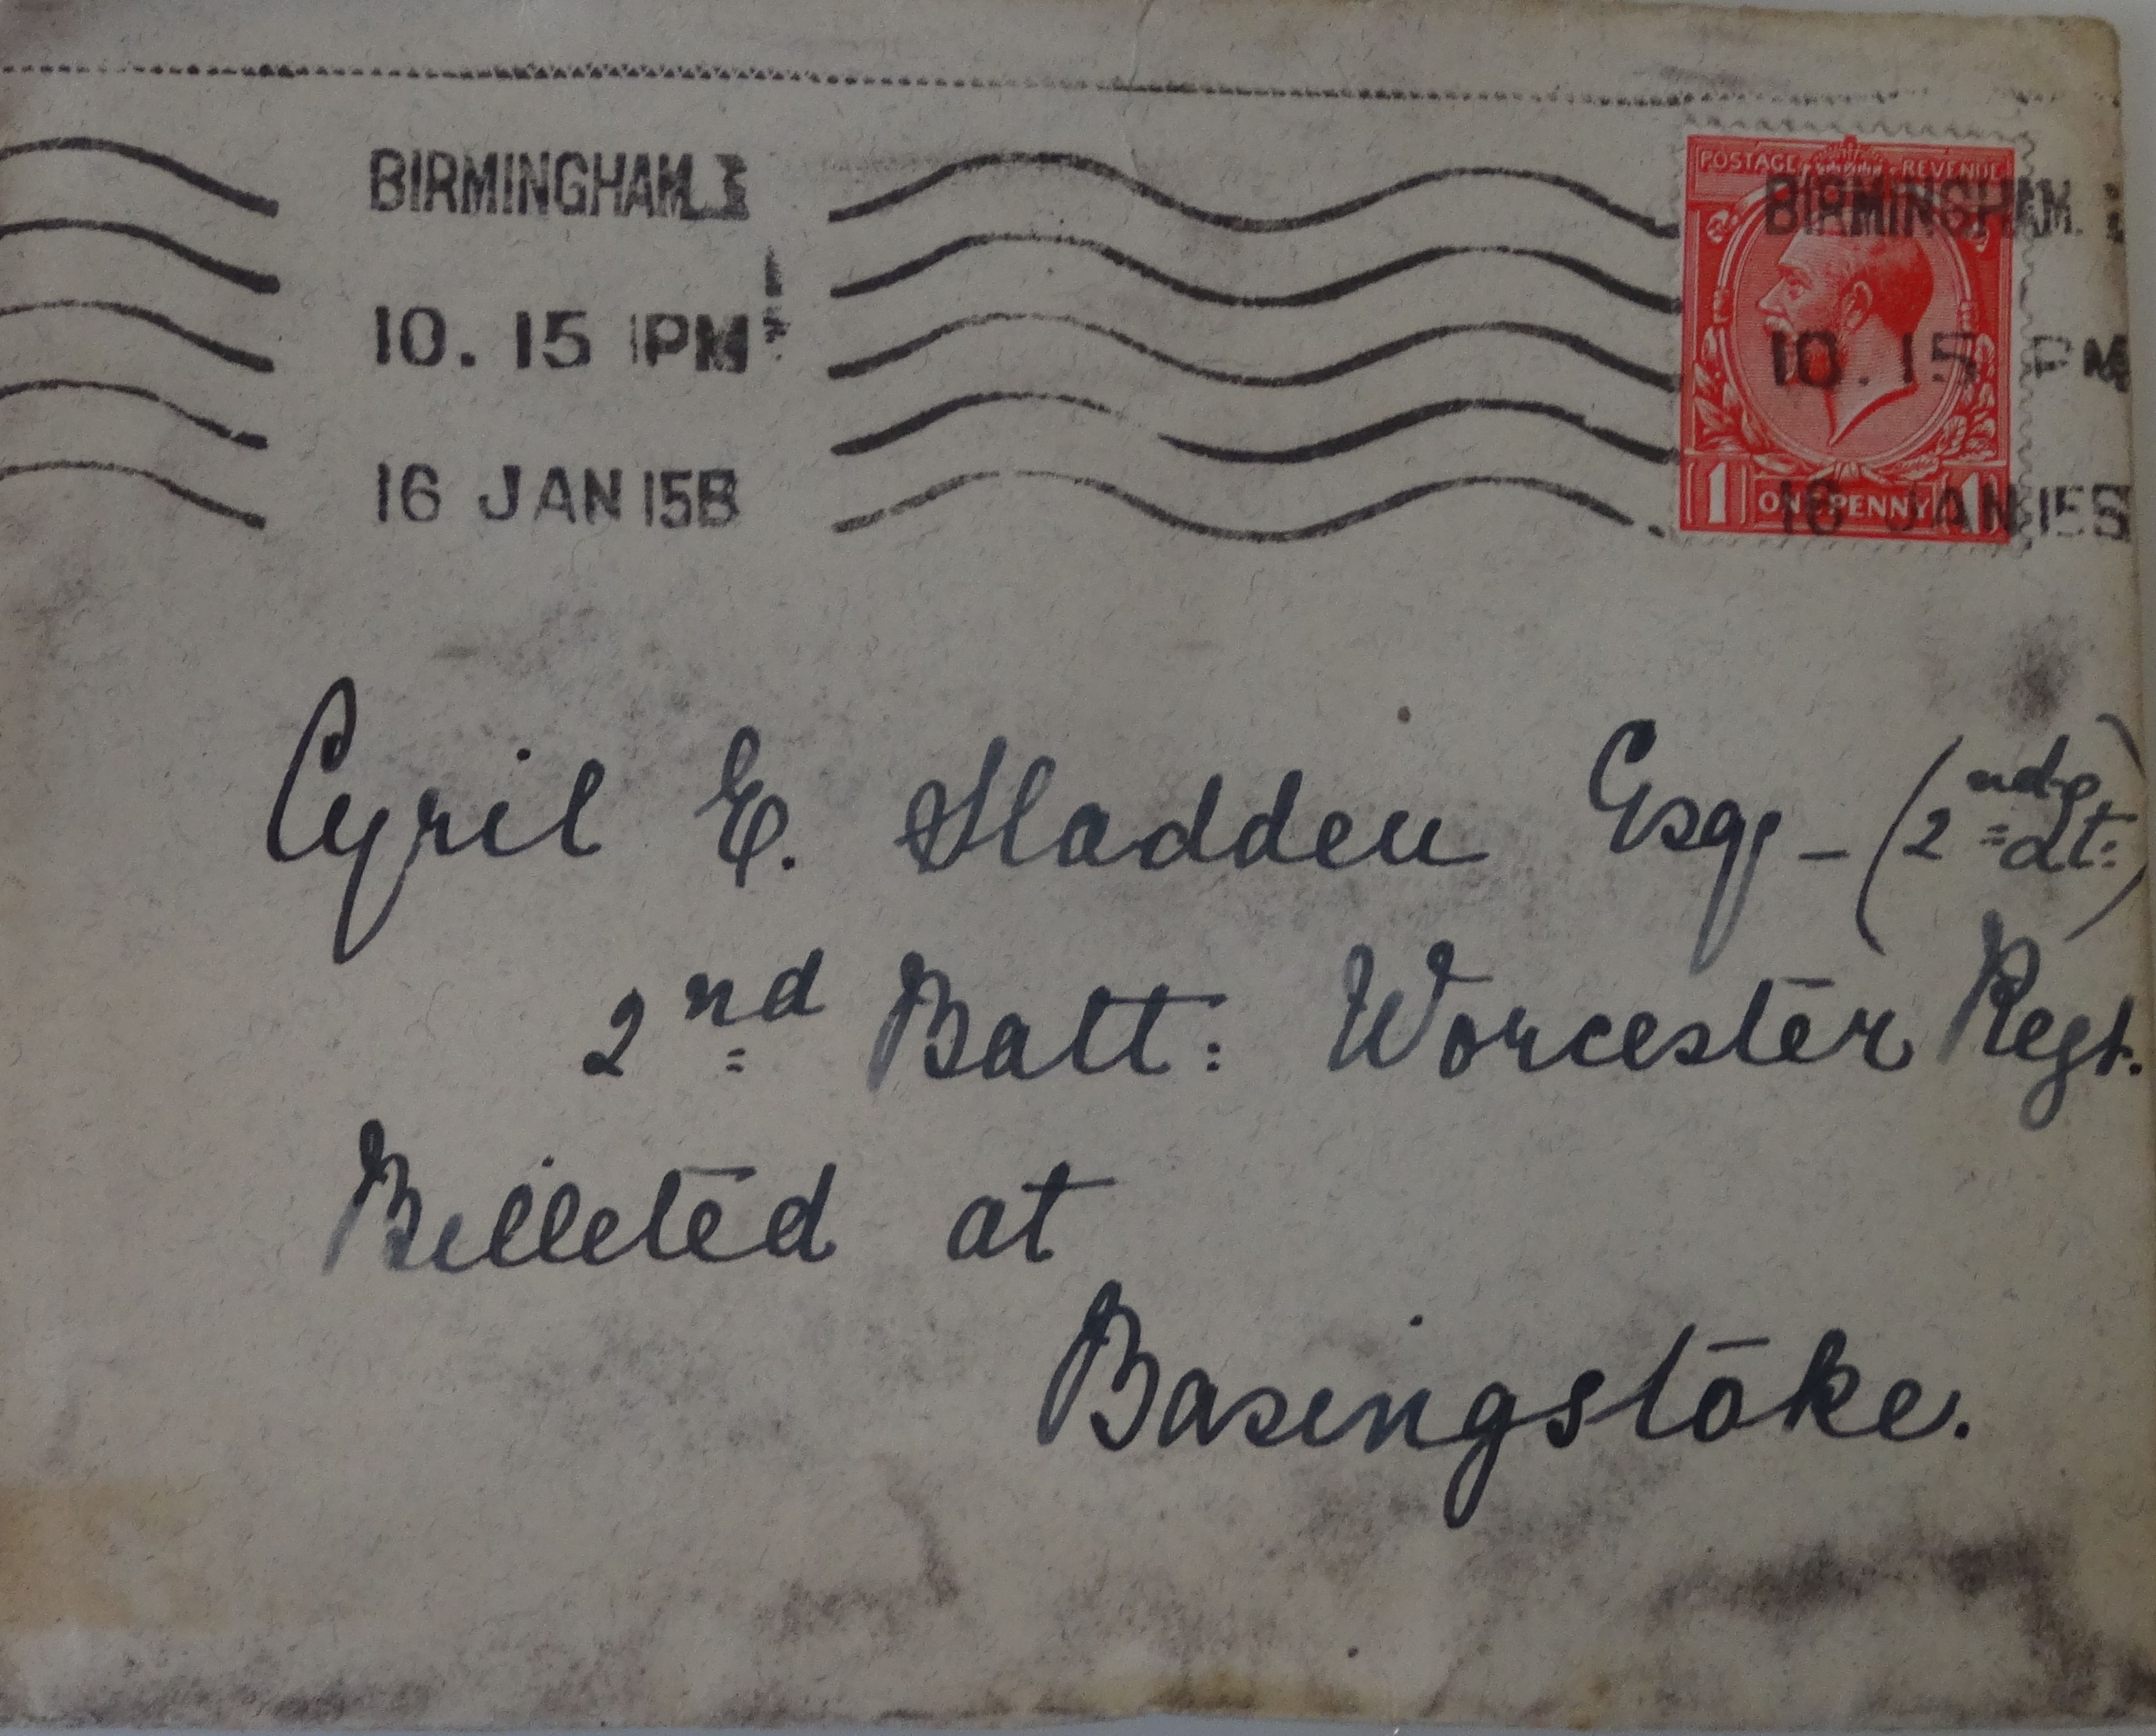 BIRMINGHAM.
10. 15 PM
16 JAN 15B
POSTAGE REVENUE
BIRMINGHAM.
10. 15 PM
16 JAN 15
1 ONE PENNY 1
Cyril E. Sladden Esq – (2nd Lt:)
2nd Batt: Worcester Regt.
Billeted at
Basingstoke.